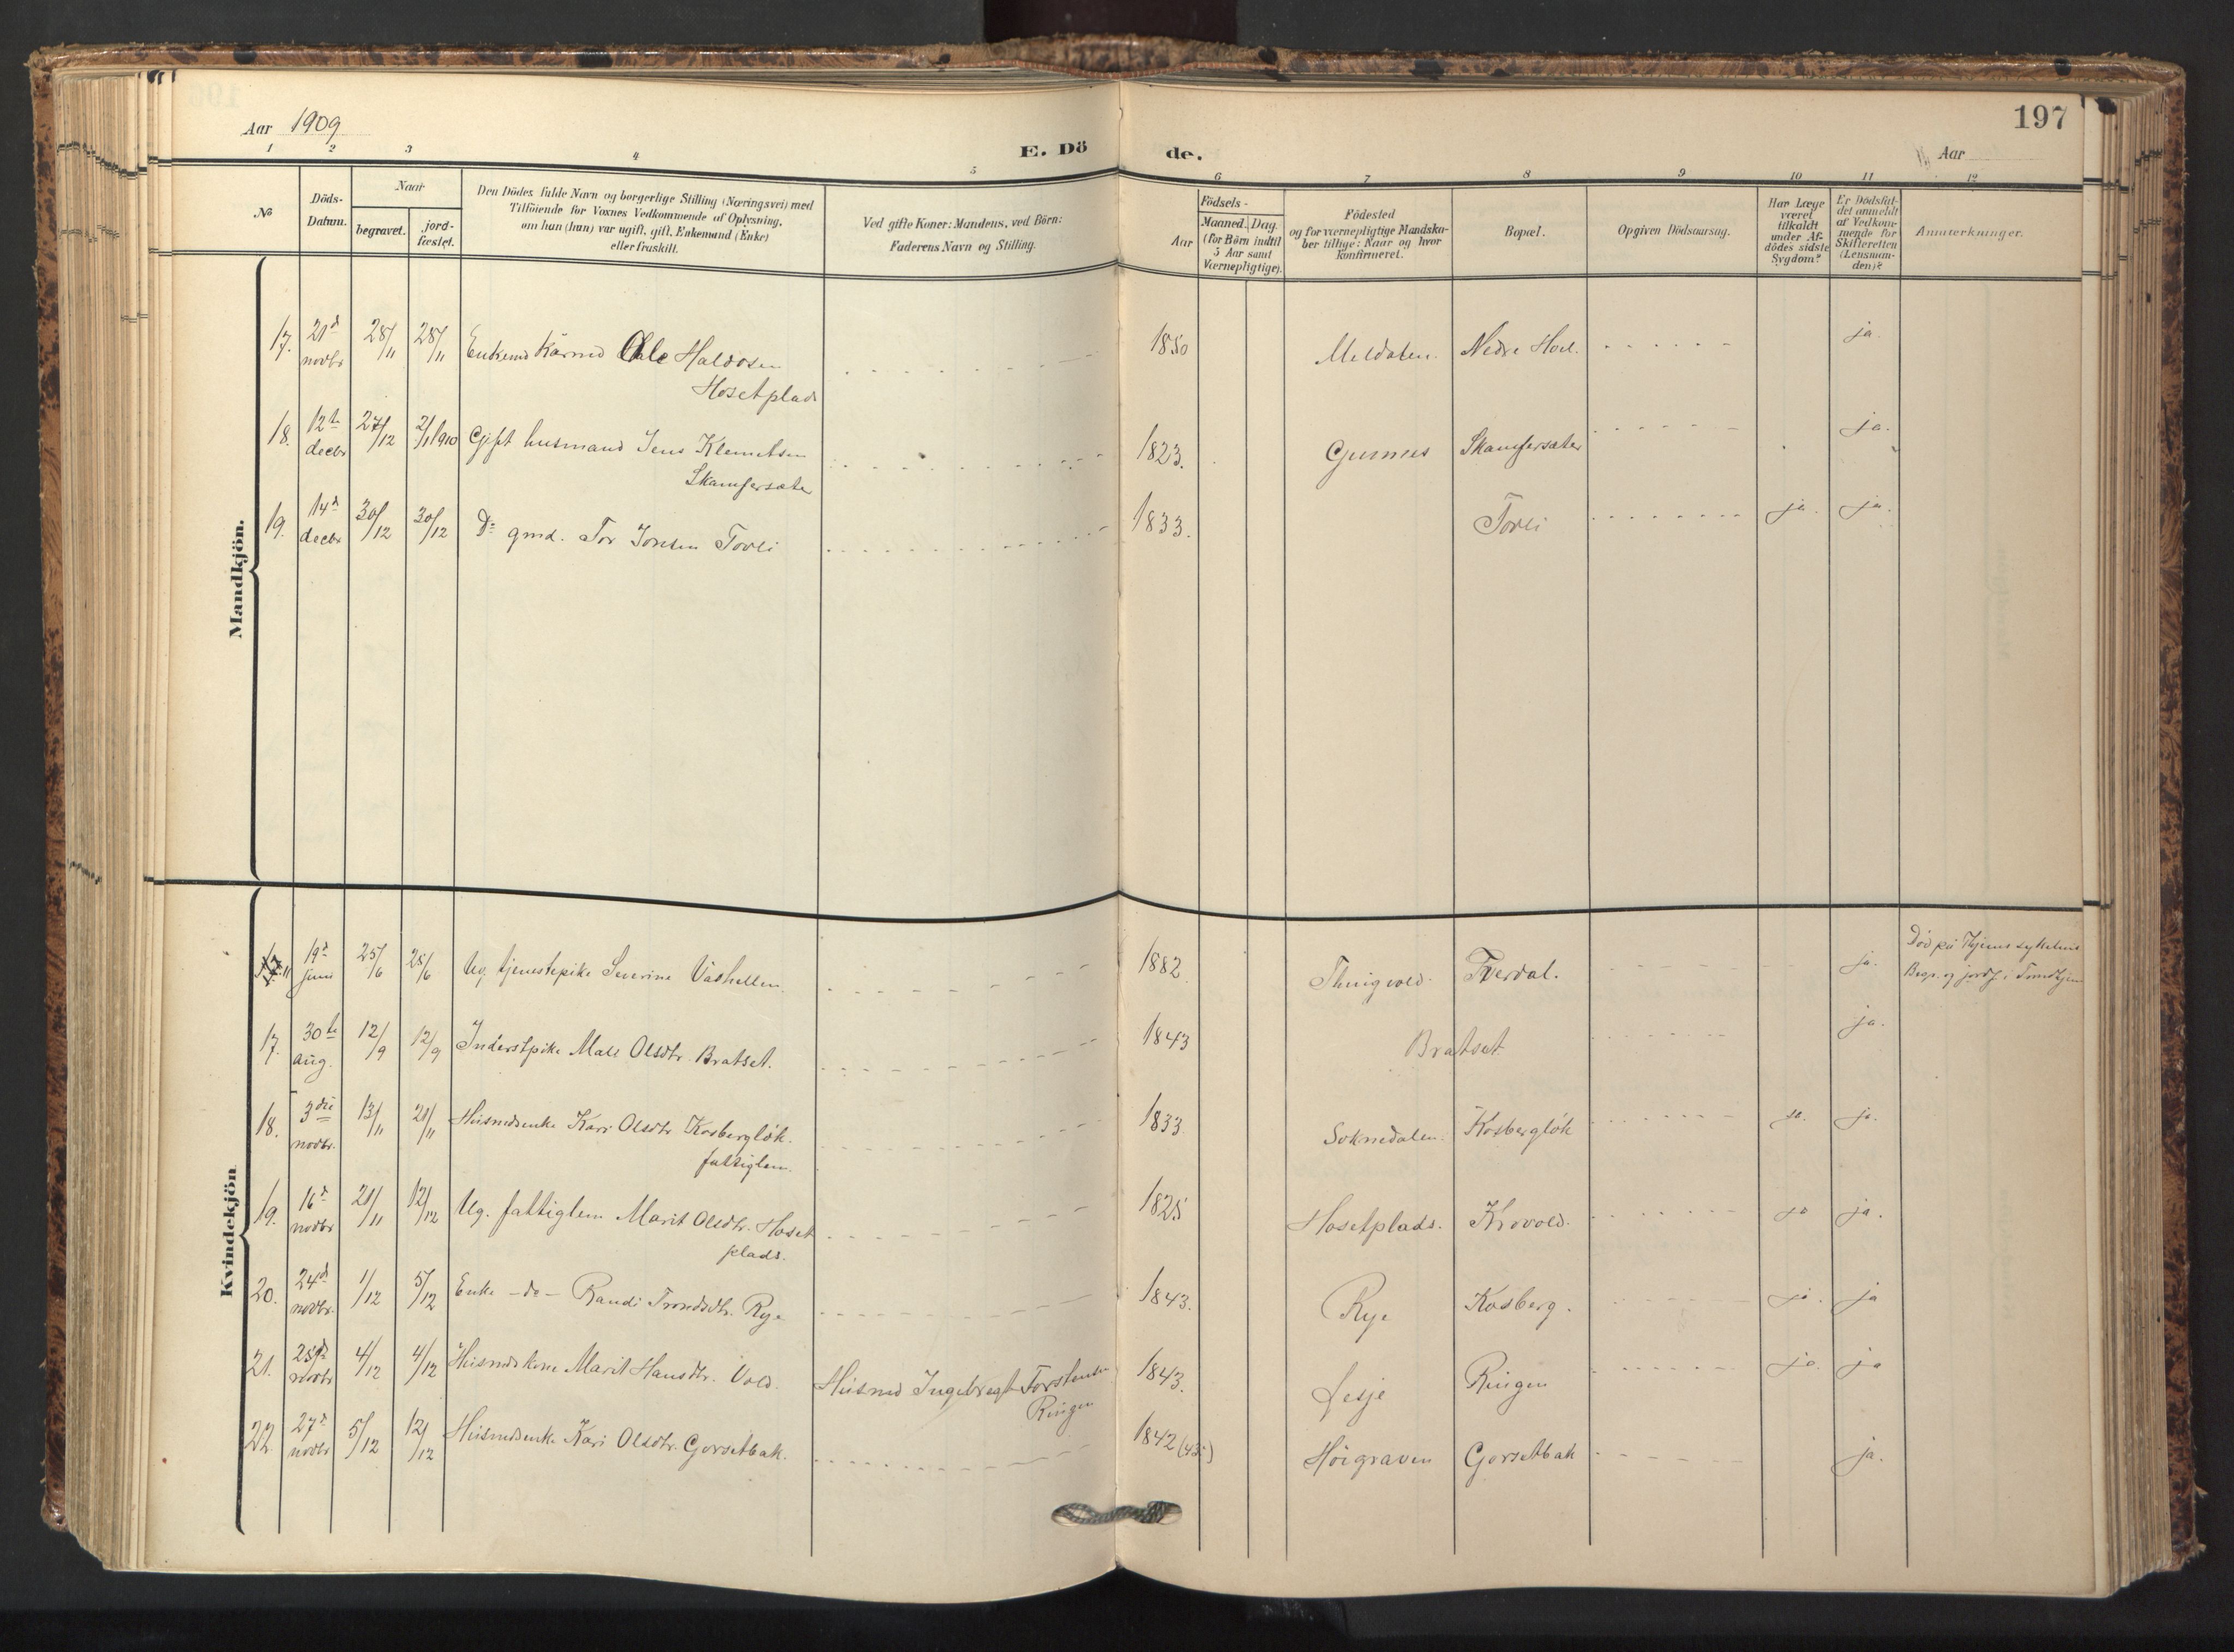 Aar 1909
E. Döde.
197
Aar
1 2 3 4 5 6 7 8 9 10 11 12
No
Döds-Datum.
Naar
begravet.
jord-fæstet.
Den Dödes fulde Navn og borgerlige Stilling (Næringsvei) med
Tilföiende for Voxnes Vedkommende af Oplysning,
om han (hun) var ugift, gift, Enkemand (Enke)
eller fraskilt.
Ved gifte Koner: Mandens, ved Börn:
Faderens Navn og Stilling.
Födsels-
Aar
Maaned. Dag.
(for Börn indtil
5 Aar samt
Værnepligtige).
Födested
og for værnepligtige Mandska-
ber tillige: Naar og hvor
konfirmeret.
Bopæl.
Opgiven Dödsaarsag.
Har Læge
været
tilkaldt
under Af-
dödes sidste
Sygdom?
Er Dödsfal-
det anmeldt
af Vedkom-
mende for
Skifteretten
(Lensman-
den)?
Anmærkninger.
Mandkjön.
17. 21d novbr 28/11 28/11 Enkemd Kårmd Ole Haldosen Hosetplads 1850 Meldalen. Nedre Hoel. ja.
18. 12te decbr 27/12 2/1 1910 Gift husmand Jens Klemetsen Skamfersæter 1823. Skamfersæter ja.
19. 14d decbr 30/12 30/12 Do gmd. Tor Jonsen Torli 1833. Torli ja. ja.
Kvindekjön
19d juni 25/6 25/6 Ug. tjenestepike Severine Våshellen. 1882 Thingvold. Tverdal. ja. Död på Thjems sykehus
Begr. og jordf. i Trondhjem
17. 30te aug. 12/9 12/9 Inderstpike Mali Olsdtr. Bratset. 1843 Bratset ja.
18. 3die novbr. 13/11 21/11 Husmdsenke Kari Olsdtr. Kosberglök. fattiglem. 1833 Soknedalen. Kosberglök ja. ja.
19. 16d novbr 21/11 12/12 Ug. fattiglem Marit Olsdtr. Hoset plads. 1825 Hosetplads. Krovold. ja ja.
20. 24d novbr. 1/12 5/12 Enke - do - Randi Trondsdtr. Rye 1843. Rye Kosberg. ja. ja
21. 25d novbr 4/12 4/12 Husmdskone Marit Hansdtr. Vold. Husmd Ingebregt Torstensen Ringen 1843. Lesje Ringen ja. ja
22. 27d novbr 5/12 12/12 Husmdsenke Kari Olsdtr. Gorsetbak. 1842 (43?) Höigraven Gorsetbak ja.